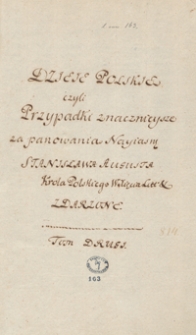 DZIEIE POLSKIE
czyli
Przypadki znacznieysze
za panowania Nayiasn
STANISŁAWA AUGUSTA
Krola Polskiego
ZDARZONE.
Tom DRUGI.
163